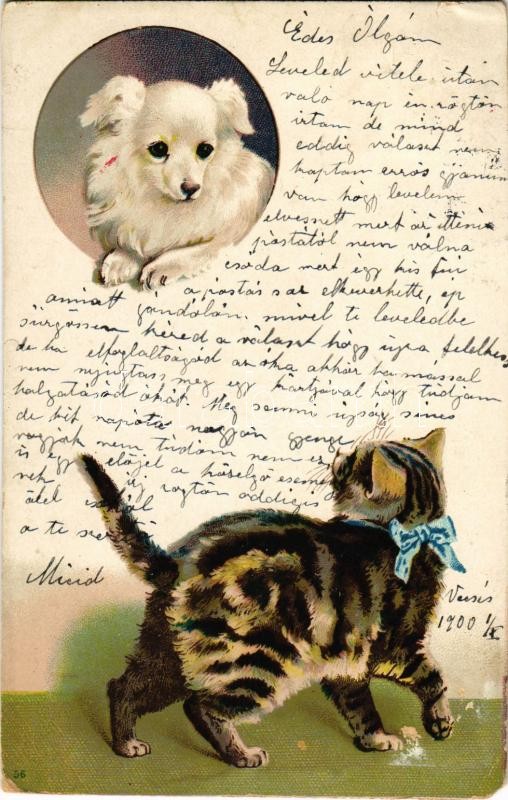 Édes Olgám
Leveled vétele után
való nap én rögtön
irtam de mind
eddig választ nem
kaptam erős gyanum
van hogy levelem
elveszett mert az itteni
postától nem volna
csoda mert egy kis fiu
a postás az elkeverhette, ép
amiatt gondolom. mivel te leveledbe
sürgössen kéred a választ hogy ujra felelhess
de ha elfoglaltságod az oka akkor hamással
nem nyugtass meg egy kártyával hogy tudjam
halgatásod okát. Még semmi ujság sincs
de két napóta nagyon gyenge
vagyok nem tudom nem ez
is egy előjel a közelgő esemé
nek uj rögtön addigis
ölel
a te
Micid
Vecsés
1900
56